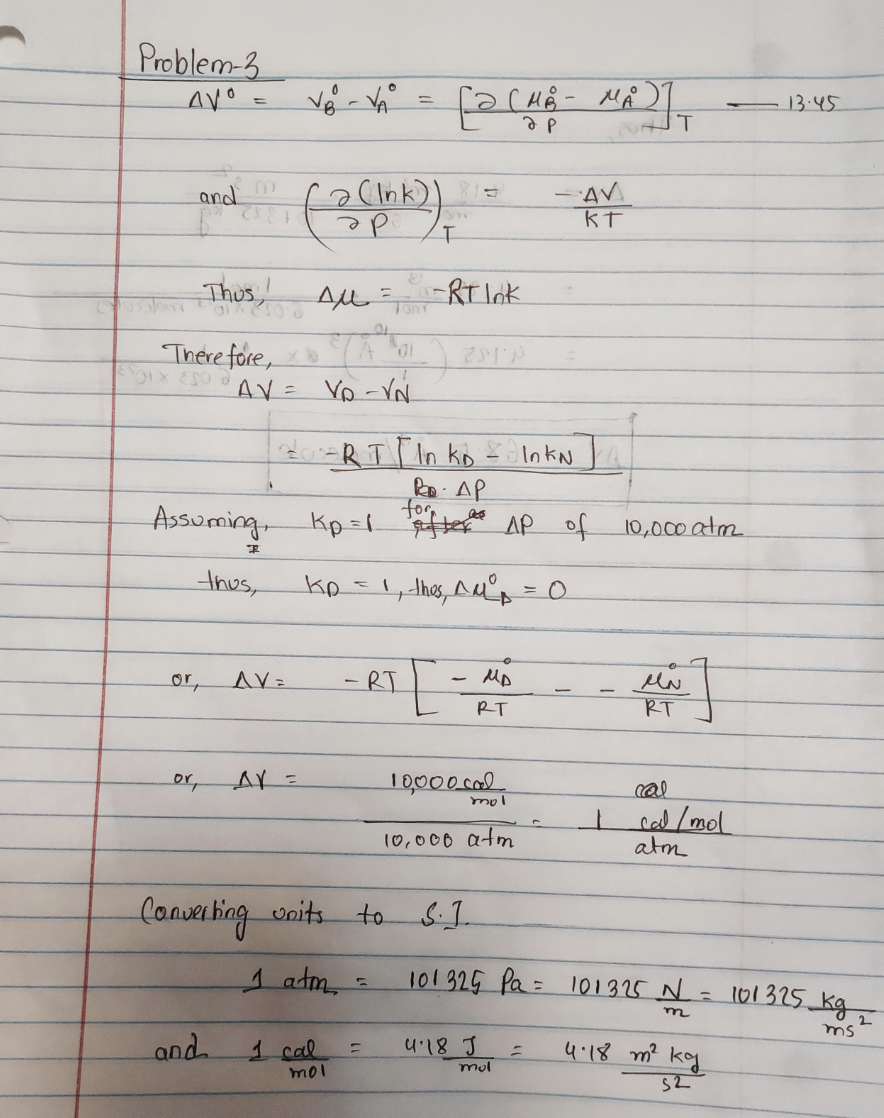 Problem-3
ΔV° = V_B° - V_A° = [∂(μ_B° - μ_A°)/∂P]_T — 13.45
and (∂(lnk)/∂P)_T = -ΔV/KT
Thus, Δμ = -RT lnK
Therefore,
ΔV = V_D - V_N
= -RT[ln k_D - ln k_N]/ΔP
Assuming, K_D = 1 for ΔP of 10,000 atm
thus, K_D = 1, thus, Δμ°_D = 0
or, ΔV = -RT[-μ_D°/RT - - μ_N°/RT]
or, ΔV = 10,000 cal/mol / 10,000 atm = 1 cal/mol / atm
Converting units to S.I.
1 atm = 101325 Pa = 101325 N/m = 101325 kg/ms²
and 1 cal/mol = 4.18 J/mol = 4.18 m² kg/s²